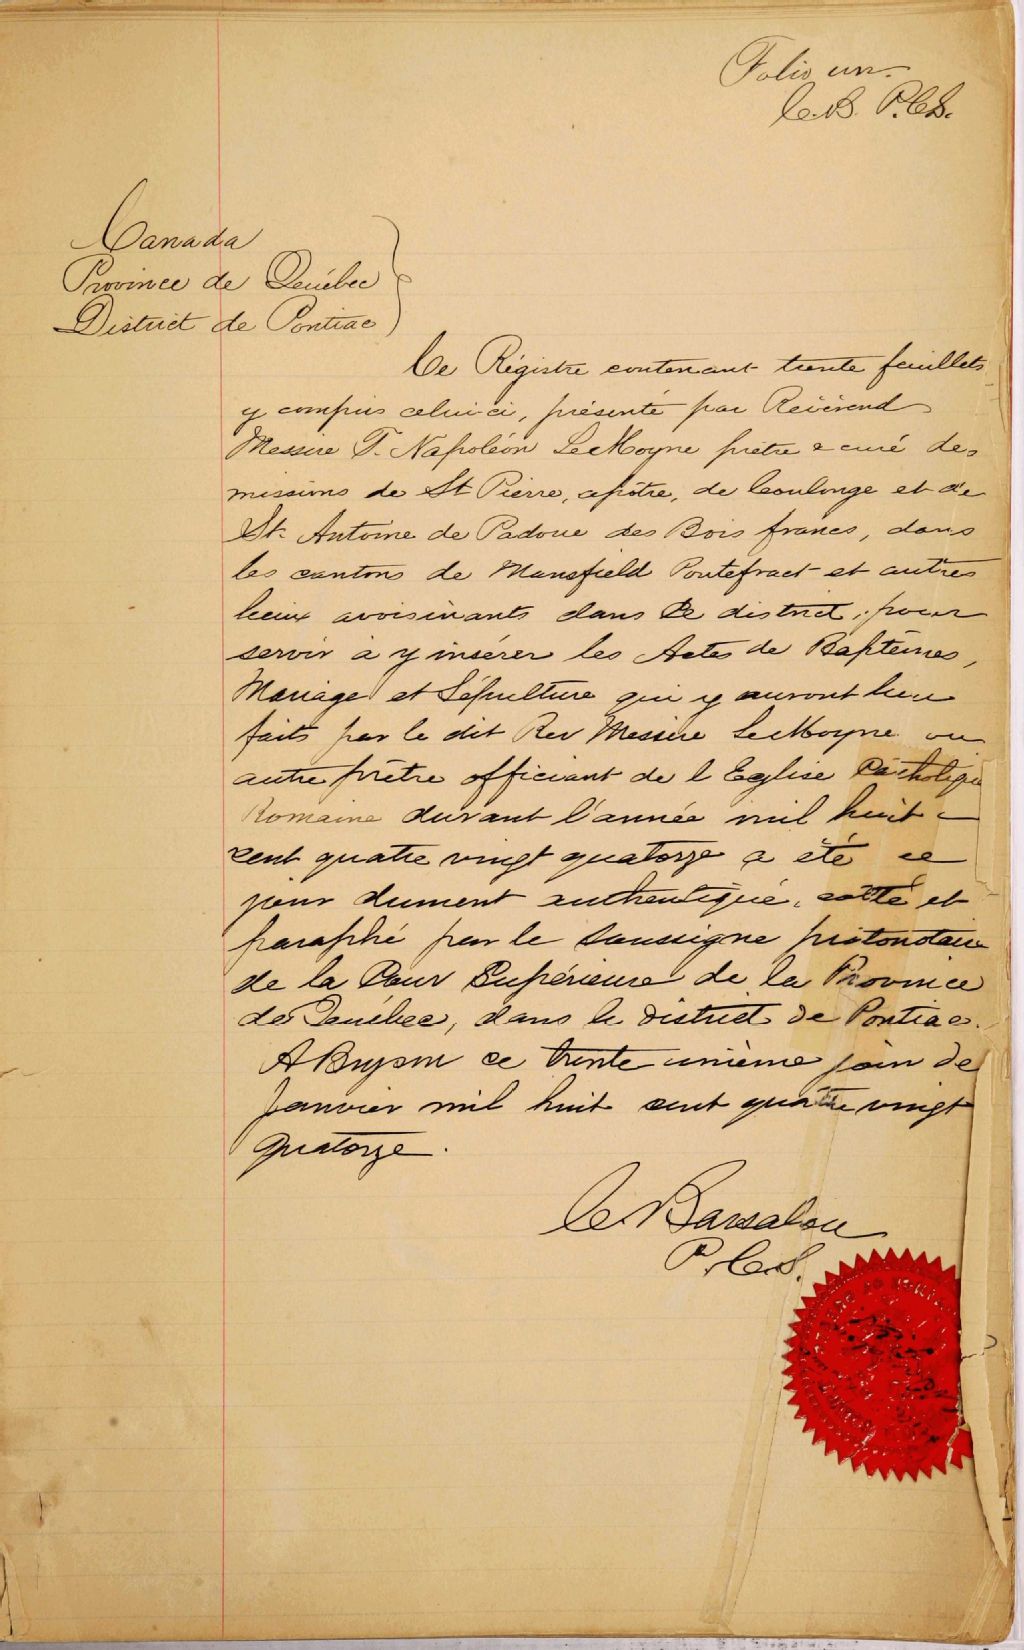 Folio un.
C. B. P.C.S.
Canada
Province de Québec
District de Pontiac
Ce Régistre contenant trente feuillets
y compris celui-ci, présenté par Révérend
Messire F. Napoléon LeMoyne prêtre & curé des
missions de St Pierre, apôtre, de Coulonge et de
St. Antoine de Padoue des Bois francs, dans
les cantons de Mansfield Pontefract et autres
lieux avoisinants dans ce district, pour
servir à y insérer les Actes de Baptêmes,
Mariage et Sépulture qui y auront lieu
faits par le dit Rev Messire LeMoyne ou
autre prêtre officiant de l Eglise Catholique
Romaine durant l'année mil huit
cent quatre vingt quatorze a été ce
jour dument authentiqué, cotté et
paraphé par le soussigné protonotaire
de la Cour Supérieure de la Province
de Québec, dans le district de Pontiac.
A Bryson ce trente unième jour de
Janvier mil huit cent quatre vingt
quatorze.
C. Barsalou
P.C.S.